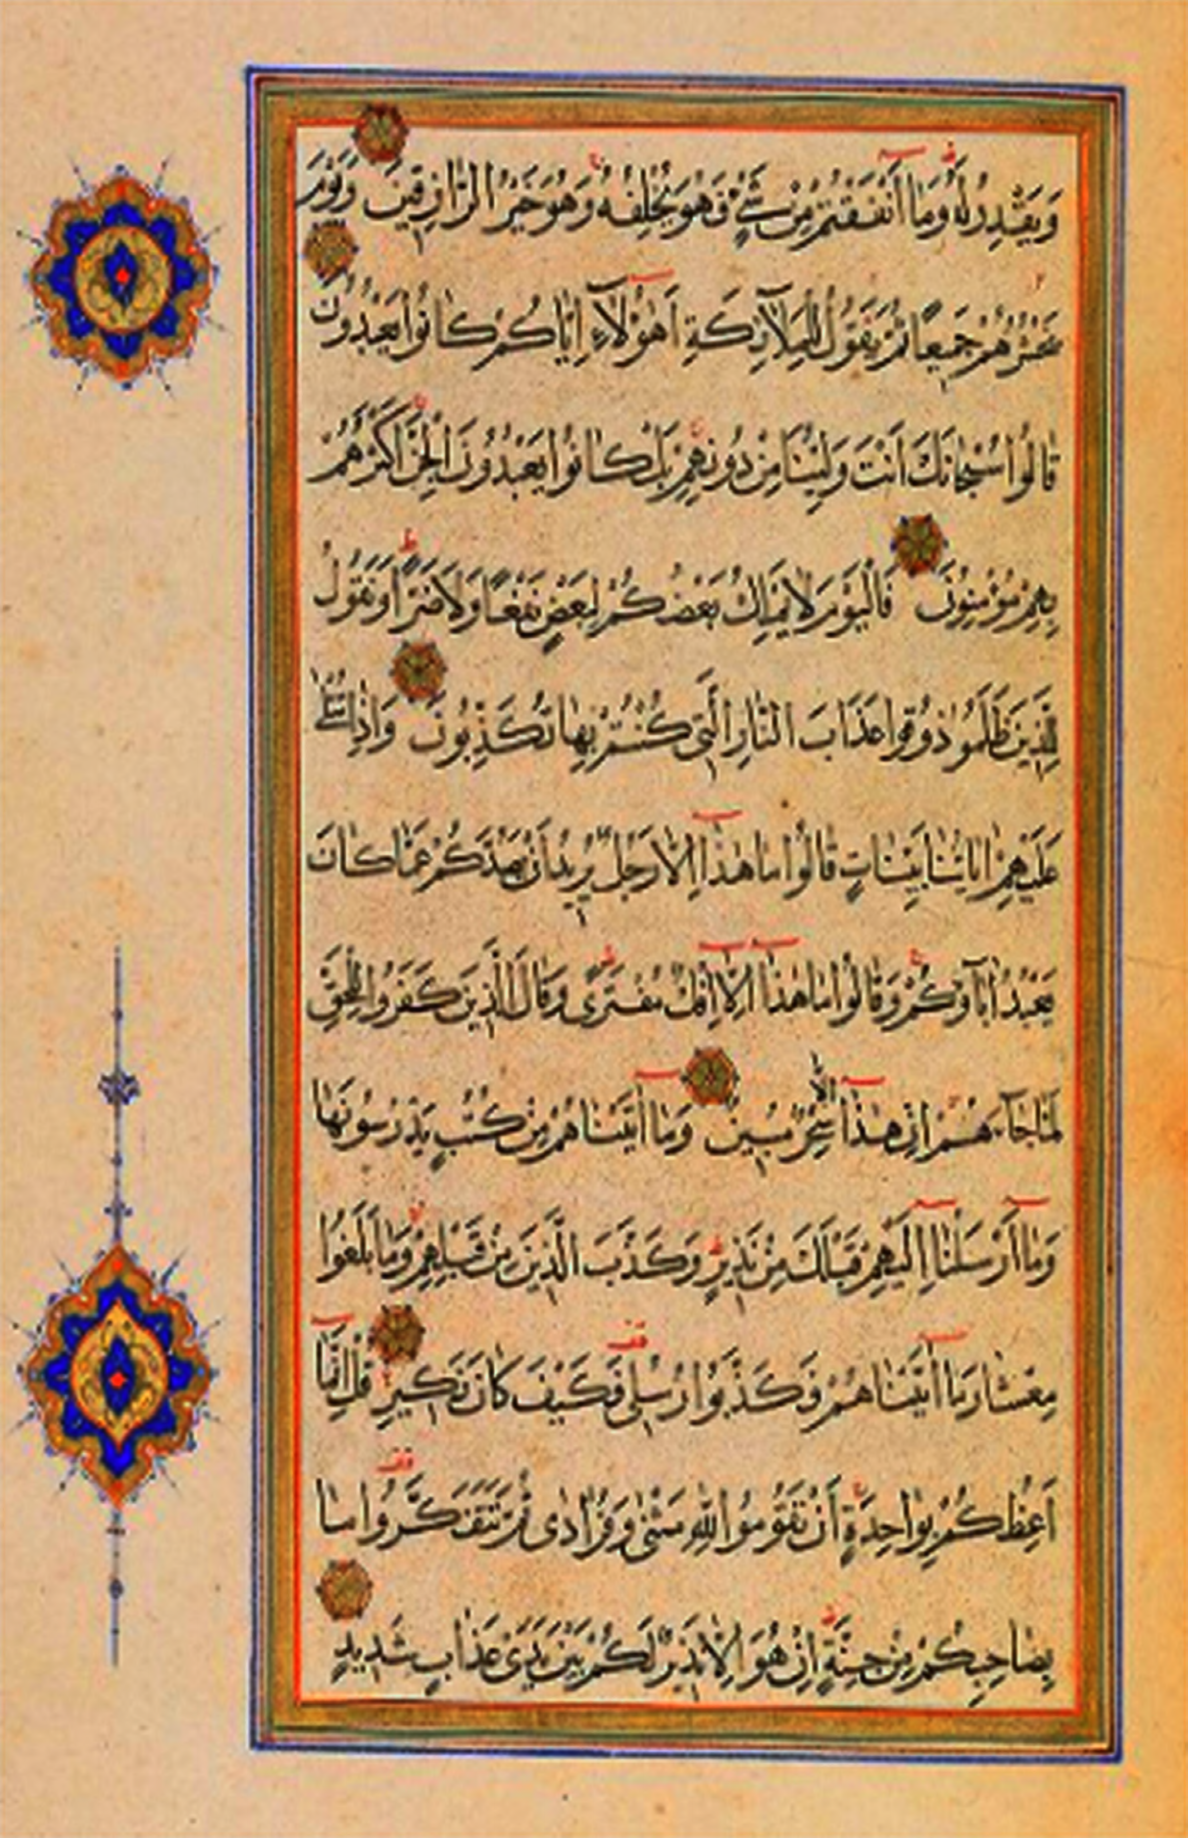 وَيَقْدِرُ لَهُ وَمَا أَنْفَقْتُمْ مِنْ شَيْءٍ فَهُوَ يُخْلِفُهُ وَهُوَ خَيْرُ الرَّازِقِينَ وَيَوْمَ
نَحْشُرُهُمْ جَمِيعًا ثُمَّ نَقُولُ لِلْمَلَآئِكَةِ اَهَؤُلَآءِ اِيَّاكُمْ كَانُوا يَعْبُدُونَ
قَالُوا سُبْحَانَكَ اَنْتَ وَلِيُّنَا مِنْ دُونِهِمْ بَلْ كَانُوا يَعْبُدُونَ الْجِنَّ اَكْثَرُهُمْ
بِهِمْ مُؤْمِنُونَ فَالْيَوْمَ لَا يَمْلِكُ بَعْضُكُمْ لِبَعْضٍ نَفْعًا وَلَا ضَرًّا وَنَقُولُ
لِلَّذِينَ ظَلَمُو ذُوقُوا عَذَابَ النَّارِ الَّتِى كُنْتُمْ بِهَا تُكَذِّبُونَ وَاِذَا تُتْلَى
عَلَيْهِمْ اٰيَاتُنَا بَيِّنَاتٍ قَالُوا مَا هٰذَا اِلَّا رَجُلٌ يُرِيدُ اَنْ يَصُدَّكُمْ عَمَّا كَانَ
يَعْبُدُ اٰبَآؤُكُمْ وَقَالُوا مَا هٰذَا اِلَّا اِفْكٌ مُفْتَرًى وَقَالَ الَّذِينَ كَفَرُوا لِلْحَقِّ
لَمَّا جَآءَهُمْ اِنْ هٰذَا اِلَّا سِحْرٌ مُبِينٌ وَمَا اٰتَيْنَاهُمْ مِنْ كُتُبٍ يَدْرُسُونَهَا
وَمَا اَرْسَلْنَا اِلَيْهِمْ قَبْلَكَ مِنْ نَذِيرٍ وَكَذَّبَ الَّذِينَ مِنْ قَبْلِهِمْ وَمَا بَلَغُوا
مِعْشَارَ مَا اٰتَيْنَاهُمْ فَكَذَّبُوا رُسُلِى فَكَيْفَ كَانَ نَكِيرِ قُلْ اِنَّمَا
اَعِظُكُمْ بِوَاحِدَةٍ اَنْ تَقُومُوا لِلّٰهِ مَثْنٰى وَفُرَادٰى ثُمَّ تَتَفَكَّرُوا مَا
بِصَاحِبِكُمْ مِنْ جِنَّةٍ اِنْ هُوَ اِلَّا نَذِيرٌ لَكُمْ بَيْنَ يَدَىْ عَذَابٍ شَدِيدٍ